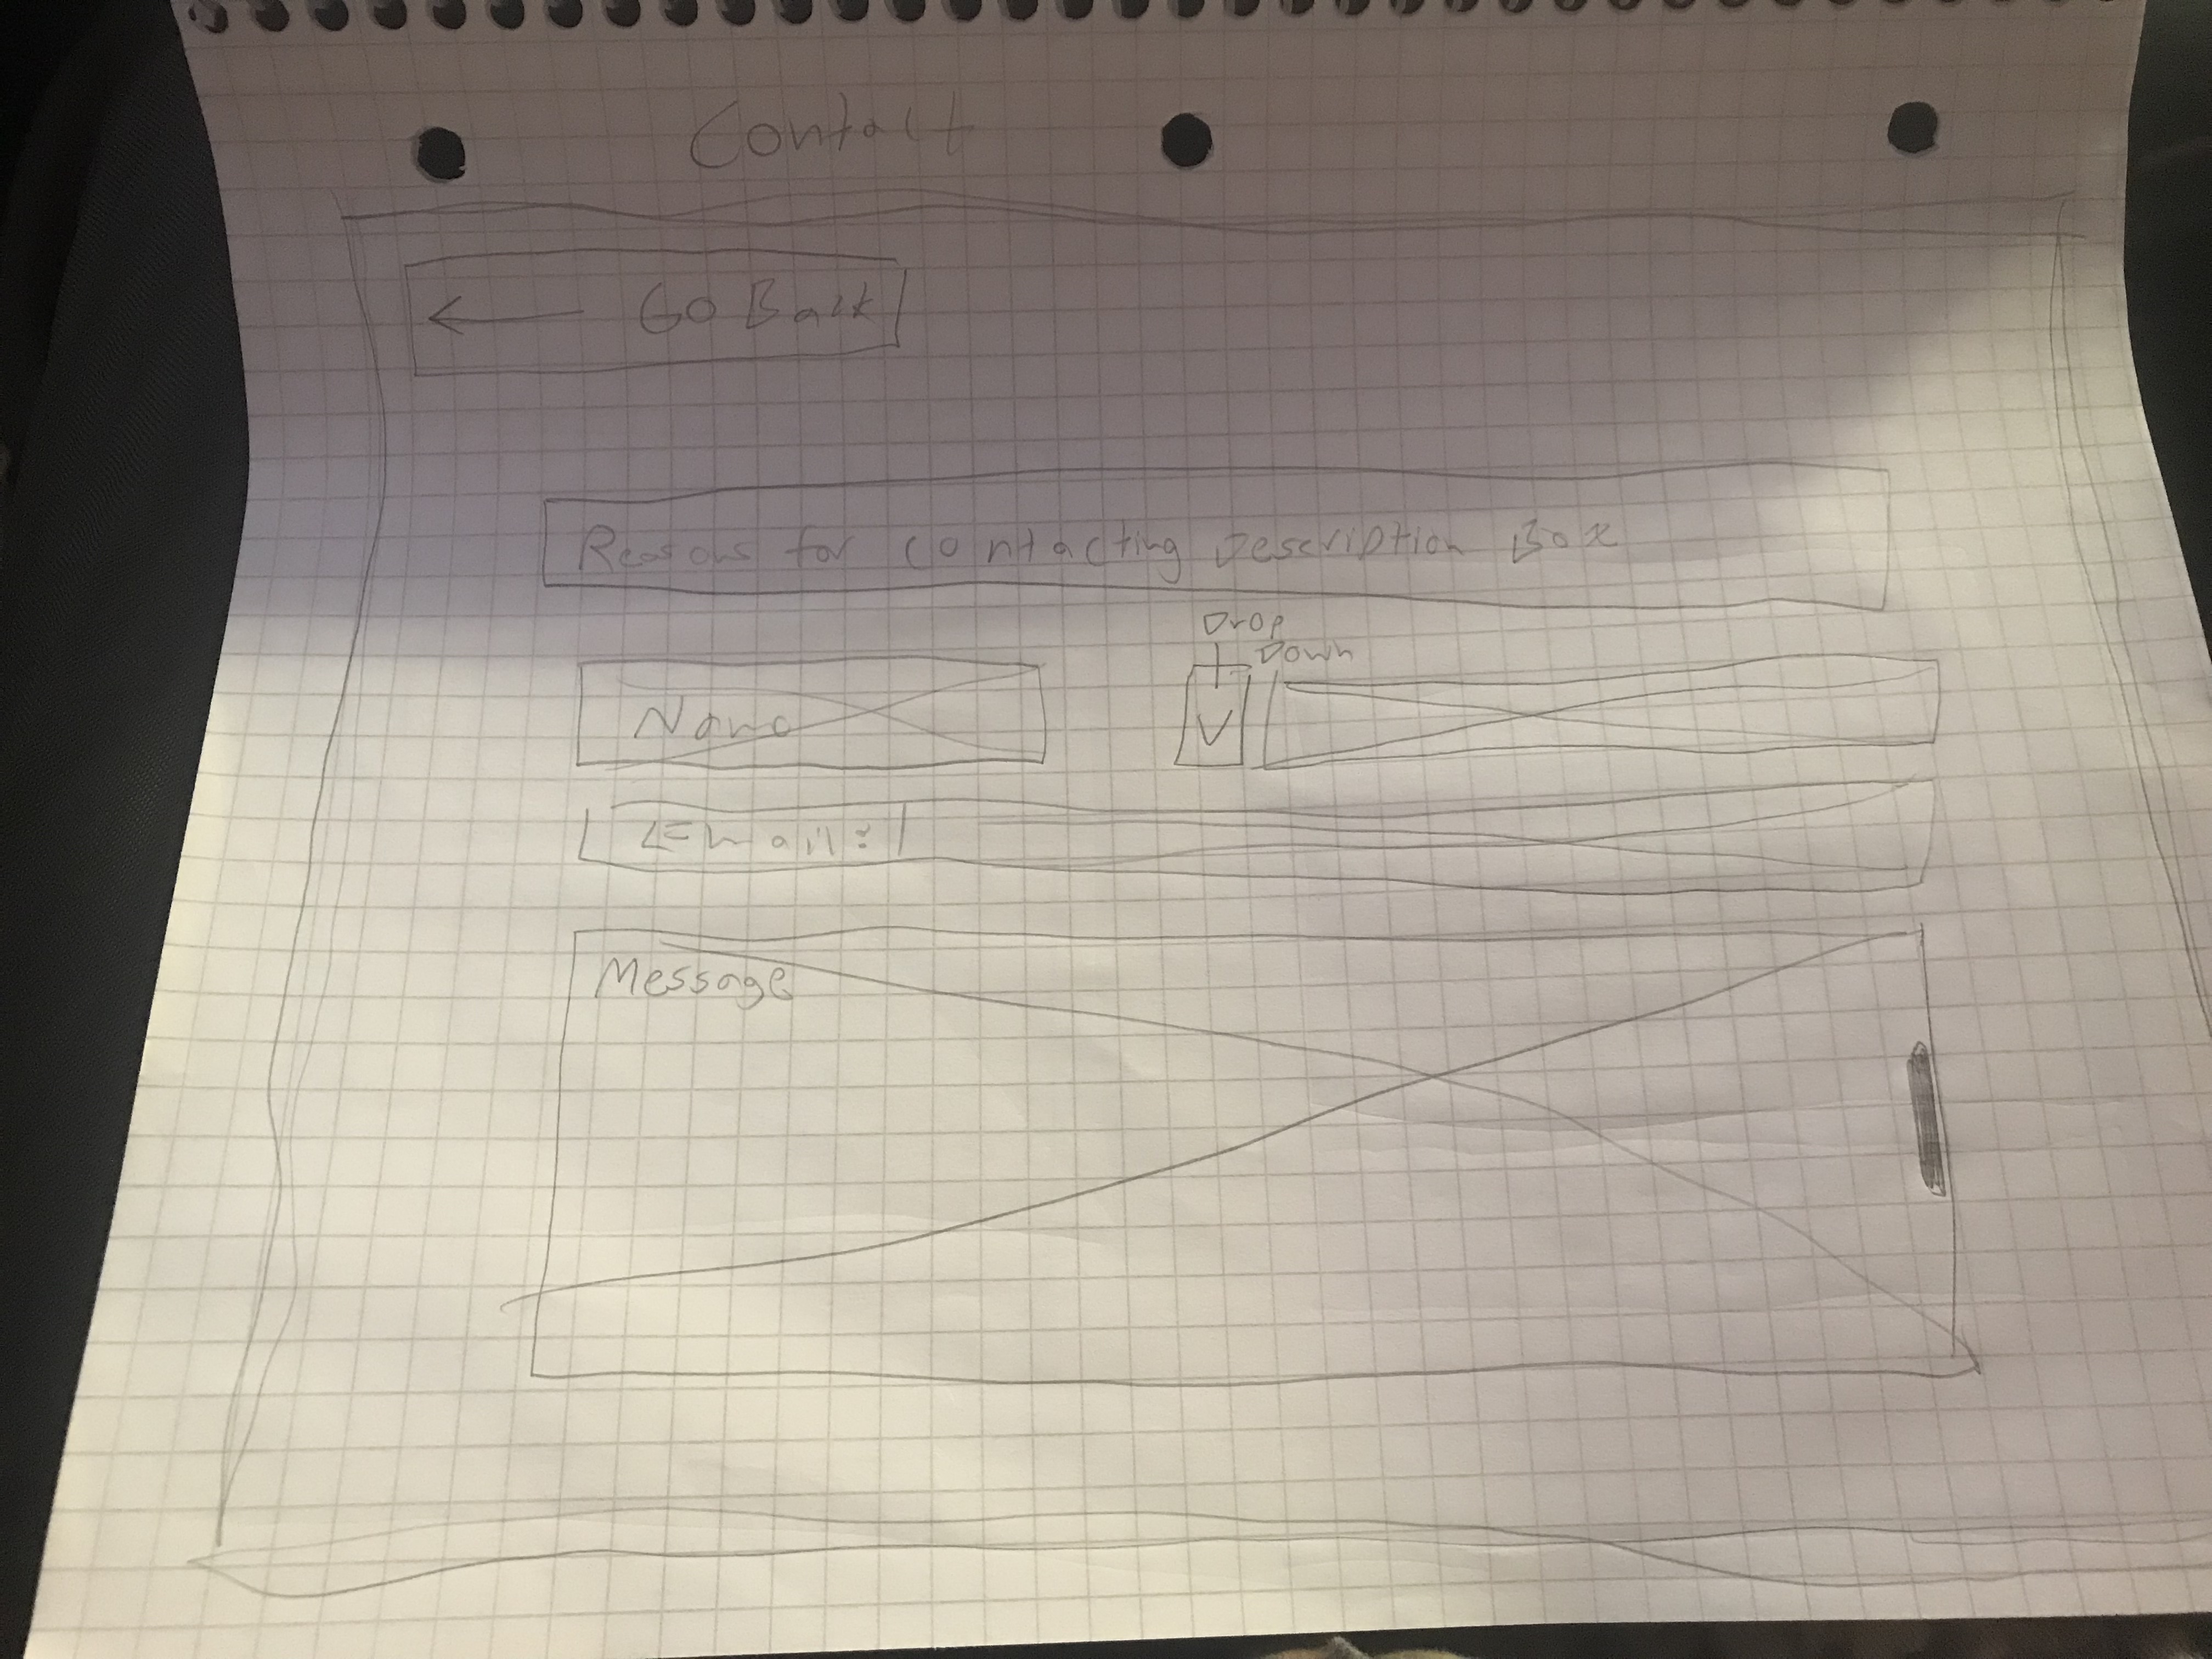 Contact
← Go Back
Reasons for contacting Description Box
Drop
Down
Name
Email:
Message